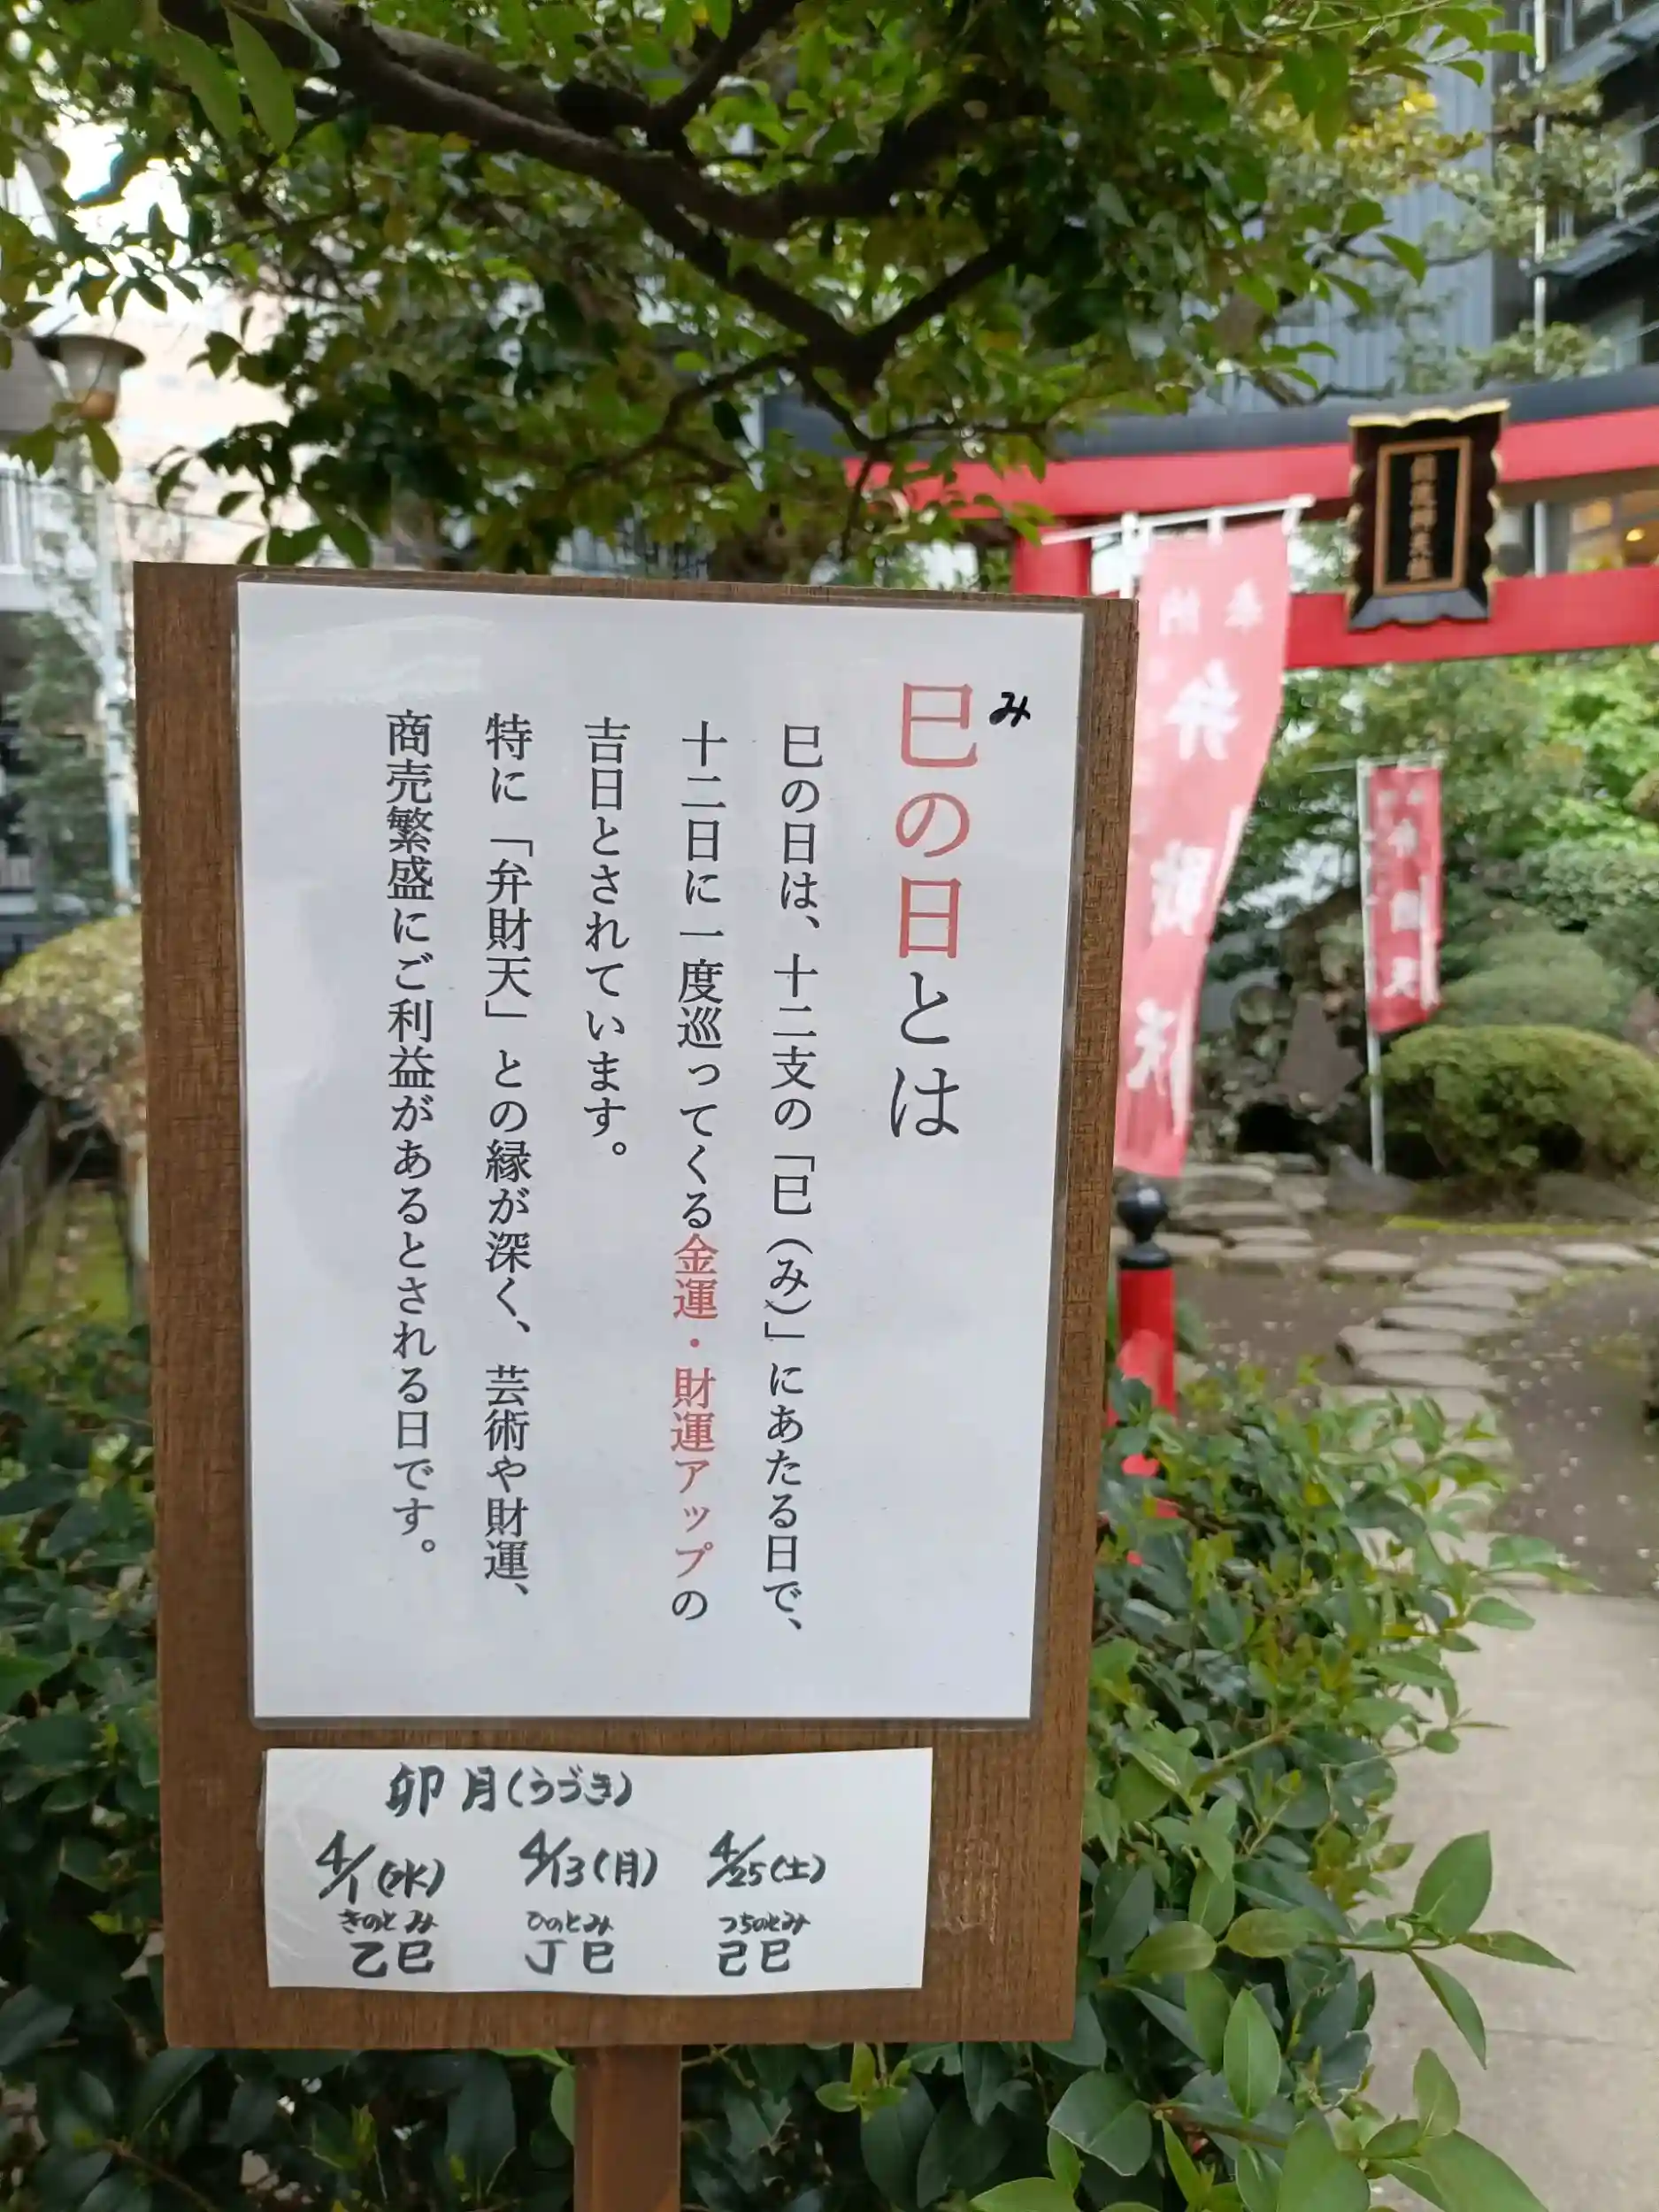 み
巳の日とは
巳の日は、十二支の「巳(み)」にあたる日で、
十二日に一度巡ってくる金運・財運アップの
吉日とされています。
特に「弁財天」との縁が深く、芸術や財運、
商売繁盛にご利益があるとされる日です。
卯月(うづき)
4/1(水) 4/13(月) 4/25(土)
きのとみ ひのとみ つちのとみ
乙巳 丁巳 己巳
奉納